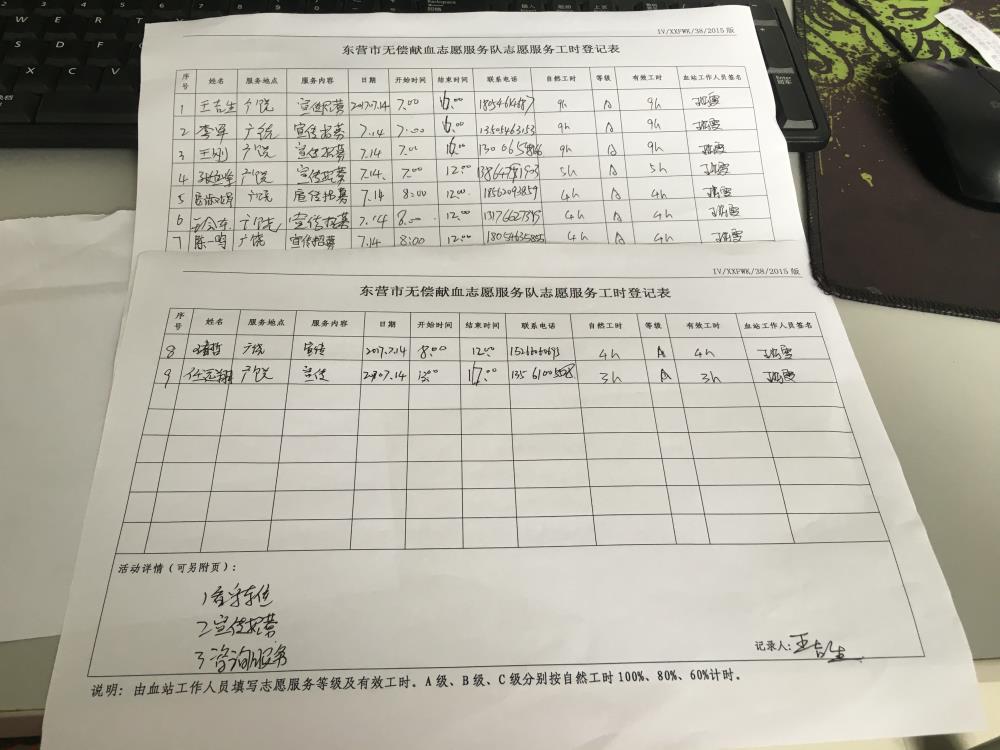 IV/XXFWK/38/2015 版
东营市无偿献血志愿服务队志愿服务工时登记表
序号 姓名 服务地点 服务内容 日期 开始时间 结束时间 联系电话 自然工时 等级 有效工时 血站工作人员签名
1 王吉生 广饶 宣传招募 2017.07.14 7:00 9h A 9h
2 李军 广饶 宣传招募 7.14 7:00 13505463153 9h A 9h
3 王刚 广饶 宣传招募 7.14 7:00 9h A 9h
4 广饶 宣传招募 7.14. 7:00 12:00 5h A 5h
5 广饶 宣传招募 7.14 8:00 12:00 18562093859 4h A 4h
6 广饶 宣传招募 7.14 8:00 12:00 4h A 4h
7 陈鸣 广饶 宣传招募 7.14 8:00 12:00 4h A 4h
IV/XXFWK/38/2015 版
东营市无偿献血志愿服务队志愿服务工时登记表
序号 姓名 服务地点 服务内容 日期 开始时间 结束时间 联系电话 自然工时 等级 有效工时 血站工作人员签名
8 广饶 宣传 2017.7.14 8:00 12:00 4h A 4h
9 任志翔 广饶 宣传 17:00 3h A 3h
活动详情（可另附页）：
1
2 宣传招募
3 咨询服务
记录人: 王吉生
说明: 由血站工作人员填写志愿服务等级及有效工时。A 级、B 级、C 级分别按自然工时 100%、80%、60%计时。